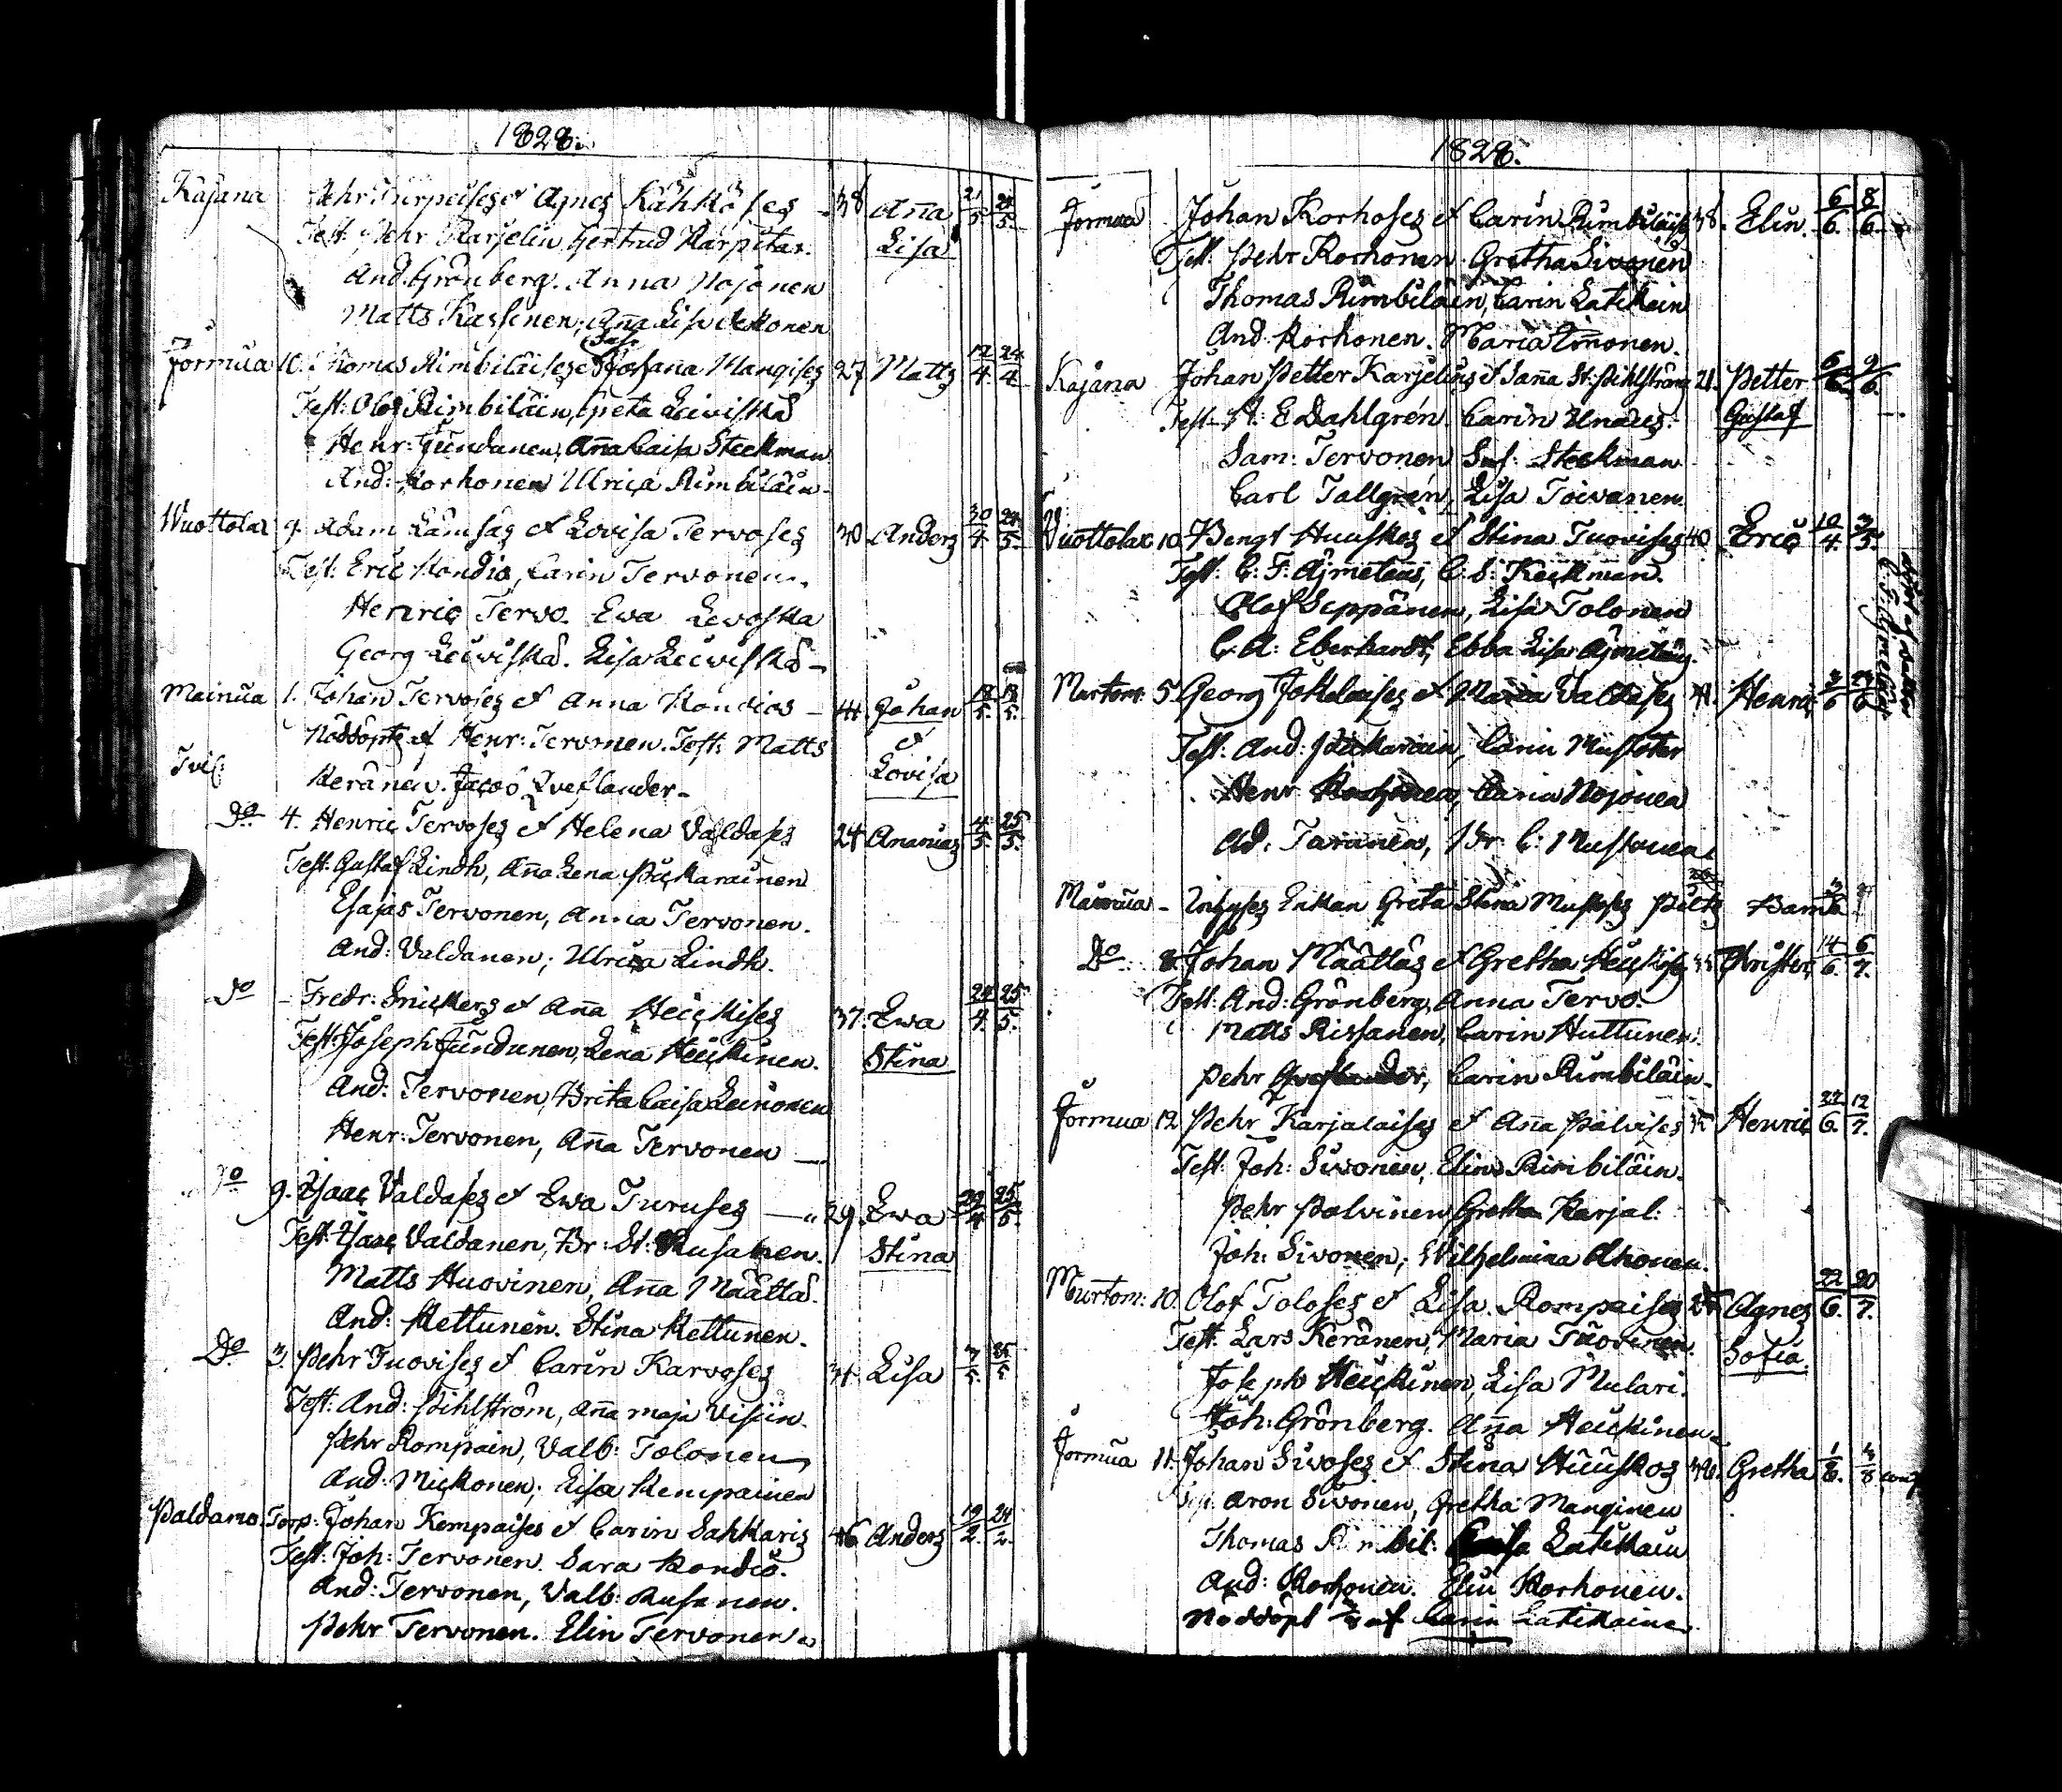 1828.
Kajana Pehr Turpeises et Agnes Kähköses 38 Anna 21/5 24/5
Test: Pehr Karjelin, Gertrud Karpitar. Lisa
And: Grönberg. Anna Mojonen
Matts Kassinen, Anna Lisa
Jormua 10. Thomas Rimbiläises et Johanna Mangises 27 Matts 12/4 24/4
Test: Olof Rimbiläin, Greta Leiviskä
Henr: Jundunen, Anna Caisa Steckman
And: Korhonen Ulrica Rimbiläin
Wuottolax 9. Adam Lämsäs et Lovisa Tervoses 30 Anders 30/4 24/5
Test: Eric Kondio, Carin Tervonen.
Henric Tervo. Ewa Levoska
Georg Leiwiskä. Lisa Leiwiskä
Mainua 1. Johan Tervoses et Anna Kondios 44. Johan 12/5 13/5
Nöddöpte af Henr: Tervonen. Test: Matts et
Tvil: Keränen. Jacob Qveflander Lovisa
Do 4. Henric Tervoses et Helena Valdases 24 Ananias 4/5 25/5
Test: Gustaf Lindh, Anna Lena Pickarainen
Esajas Tervonen, Anna Tervonen.
And: Valdanen; Ulrica Lindh.
Do Fredr: Snickers et Anna Heickises 37. Ewa 24/4 25/5
Test: Joseph Jundunen, Lena Heickinen. Stina
And: Tervonen, Brita Caisa Leinonen
Henr: Tervonen, Anna Tervonen
Do 9. Isaac Valdases et Ewa Turuses 29. Ewa 29/4 25/5
Test: Isaac Valdanen, Br: St: Rusanen. Stina
Matts Huovinen, Anna Määttä.
And: Kettunen. Stina Kettunen.
Do 3. Pehr Tuovises et Carin Karvoses 34. Lisa 3/5 25/5
Test: And: Pihlström, Anna Maja Visiin.
Pehr Rompain, Valb: Tolonen
And: Mickonen; Lisa Kempainen
Paldamo. Torp: Johan Kempaises et Carin Sahkaris 46 Anders 19/2 24/2
Test: Joh: Tervonen. Sara Kondio.
And: Tervonen, Valb: Rusanen.
Pehr Tervonen. Elin Tervonen
1828.
Jormua Johan Korhoses et Carin Rimbiläis 38. Elin 6/6 8/6
Test: Pehr Korhonen. Gretha Sivonen
Thomas Rimbiläin, Carin Latikain
And: Korhonen. Maria Immonen.
Kajana Johan Petter Karjelins et Sanna St: Pihlströms 21. Petter 6/6 9/6
Test: A: E Dahlgrén. Carin Gustaf
Sam: Tervonen Sus: Steckman
Carl Tallgrén, Lisa Toivanen
Vuottolax 10. Bengt Huuskos et Stina Tuovises 40. Eric 10/4 3/5
Test: C: F: Ajmelæus, C: S: Keckman.
Olof Seppänen, Lisa Tolonen
C. A: Eberhardt, Ebba Lisa Ajmelæus
Murtom: 5. Georg Jokelaises et Maria Valdases Henric 3/6 24/6
Test: And: Pickarain, Carin Mustotar
Henr Korhonen, Carin Mojonen
Ad. Taranen, Br: C: Mustonen
Mainua Enkan Greta Stina Mustos Barn
Do 8. Johan Määttäs et Gretha Heickises 35. Christer 14/6 6/7
Test: And: Grönberg, Anna Tervo.
Matts Rissanen, Carin Huttunen.
Pehr Qveflander, Carin Rimbiläin
Jormua 12 Pehr Karjalaises et Anna Palvises Henric 22/6 12/7
Test: Joh: Sivonen, Elin Rimbiläin.
Pehr Palvinen Gretha Karjal:
Joh: Sivonen; Wilhelmina Ahonen.
Murtom: 10. Olof Toloses et Lisa Rompaises Agnes 22/6 20/7
Test: Lars Keränen, Maria Tuovinen. Sofia.
Joseph Heickinen, Lisa Mulari.
Joh: Grönberg. Anna Heickinen
Jormua 11. Johan Sivoses et Stina Huuskos Gretha
Test: Aron Sivonen, Gretha Manginen
Thomas Rimbil: Latikain
And: Korhonen. Elin Korhonen.
Nöddöpt af Carin Latikain